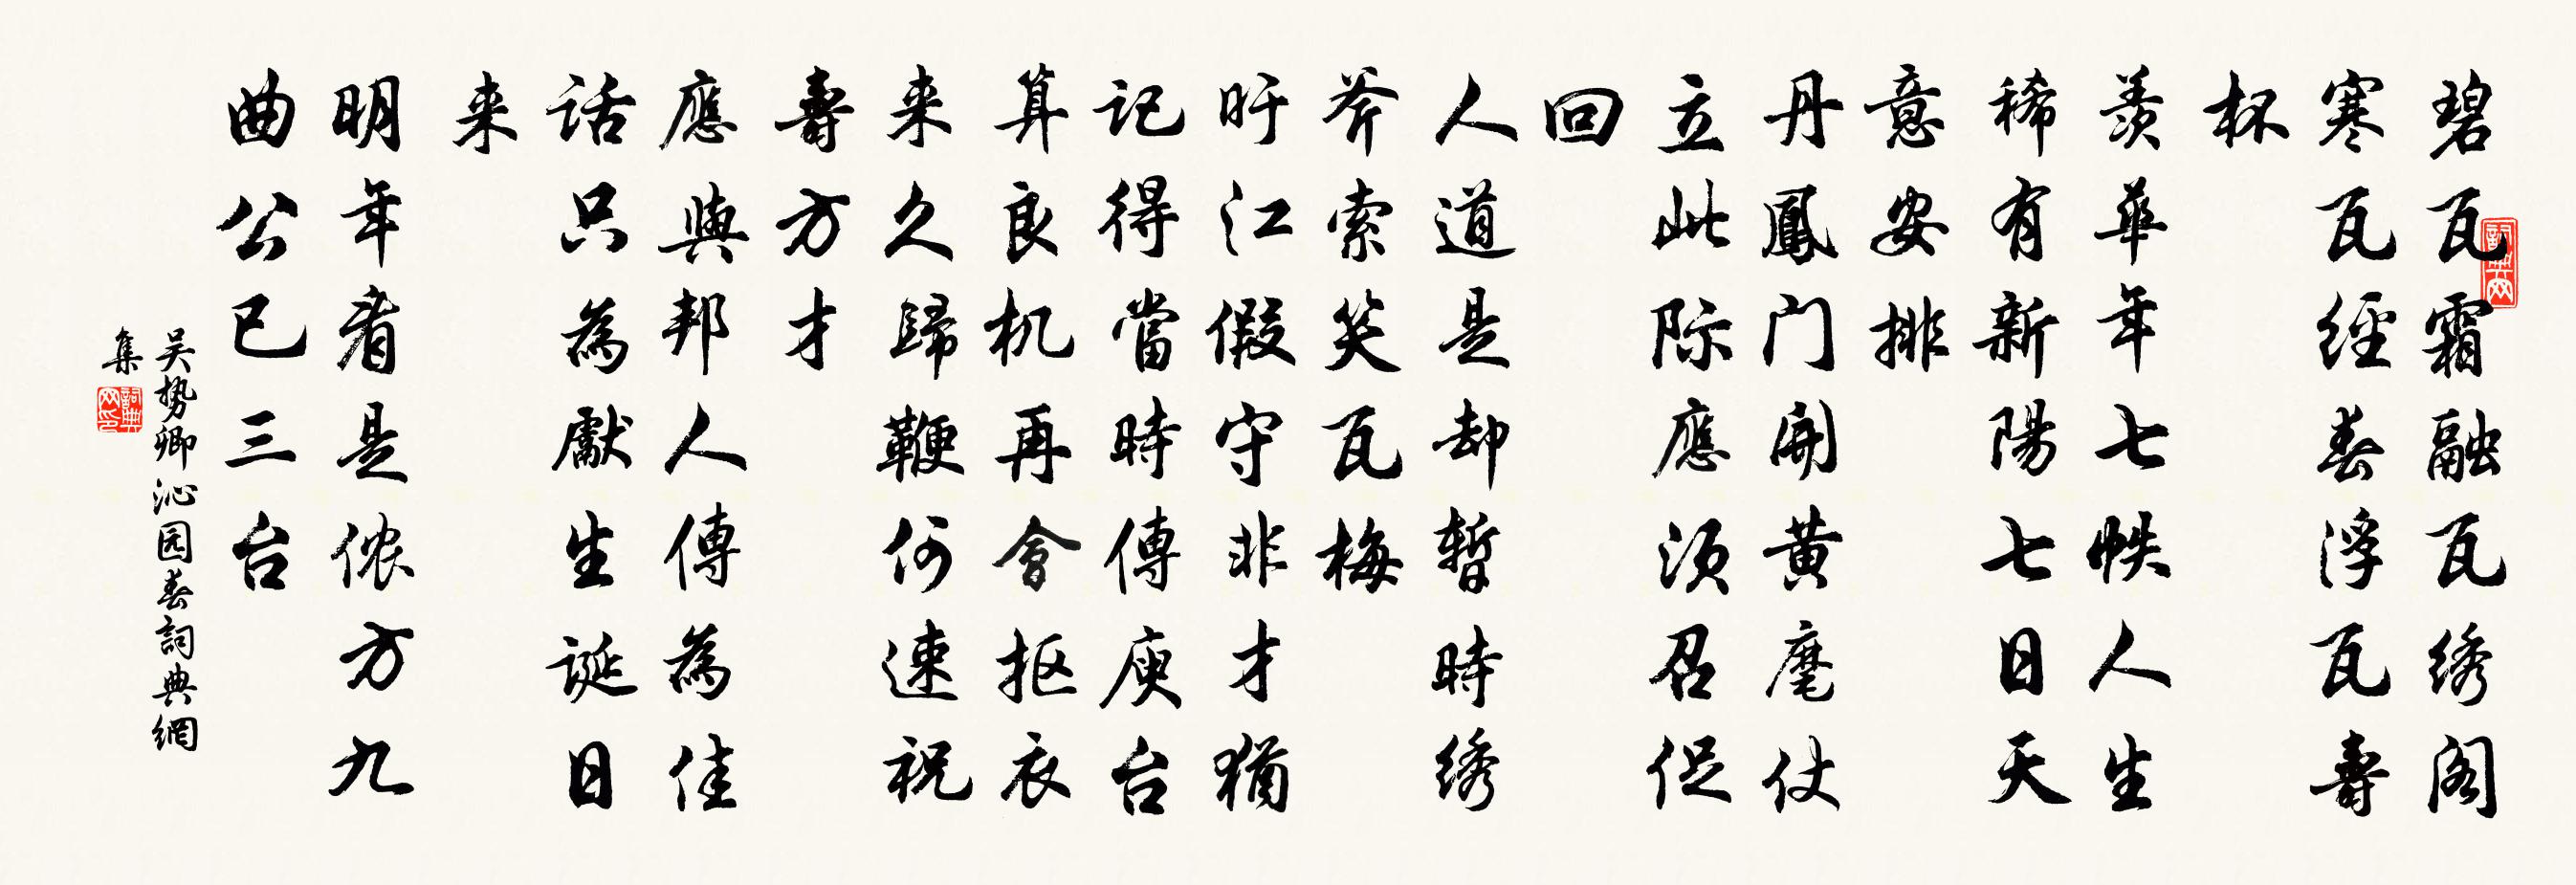 碧瓦霜融瓦绣阁
寒瓦经春浮瓦壽
杯
羡華年七帙人生
稀有新陽七日天
意安排
丹鳳门開黄麾仗
立此际應须召促
回
人道是却暫時绣
斧索笑瓦梅
盱江假守非才猶
记得當時傳庾台
算良机再會抠衣
来久歸鞭何速祝
壽方才
應與邦人傳為佳
话只為獻生诞日
来
明年看是侬方九
曲公已三台
吴势卿沁园春詞典網
集
詞典网
詞典网印